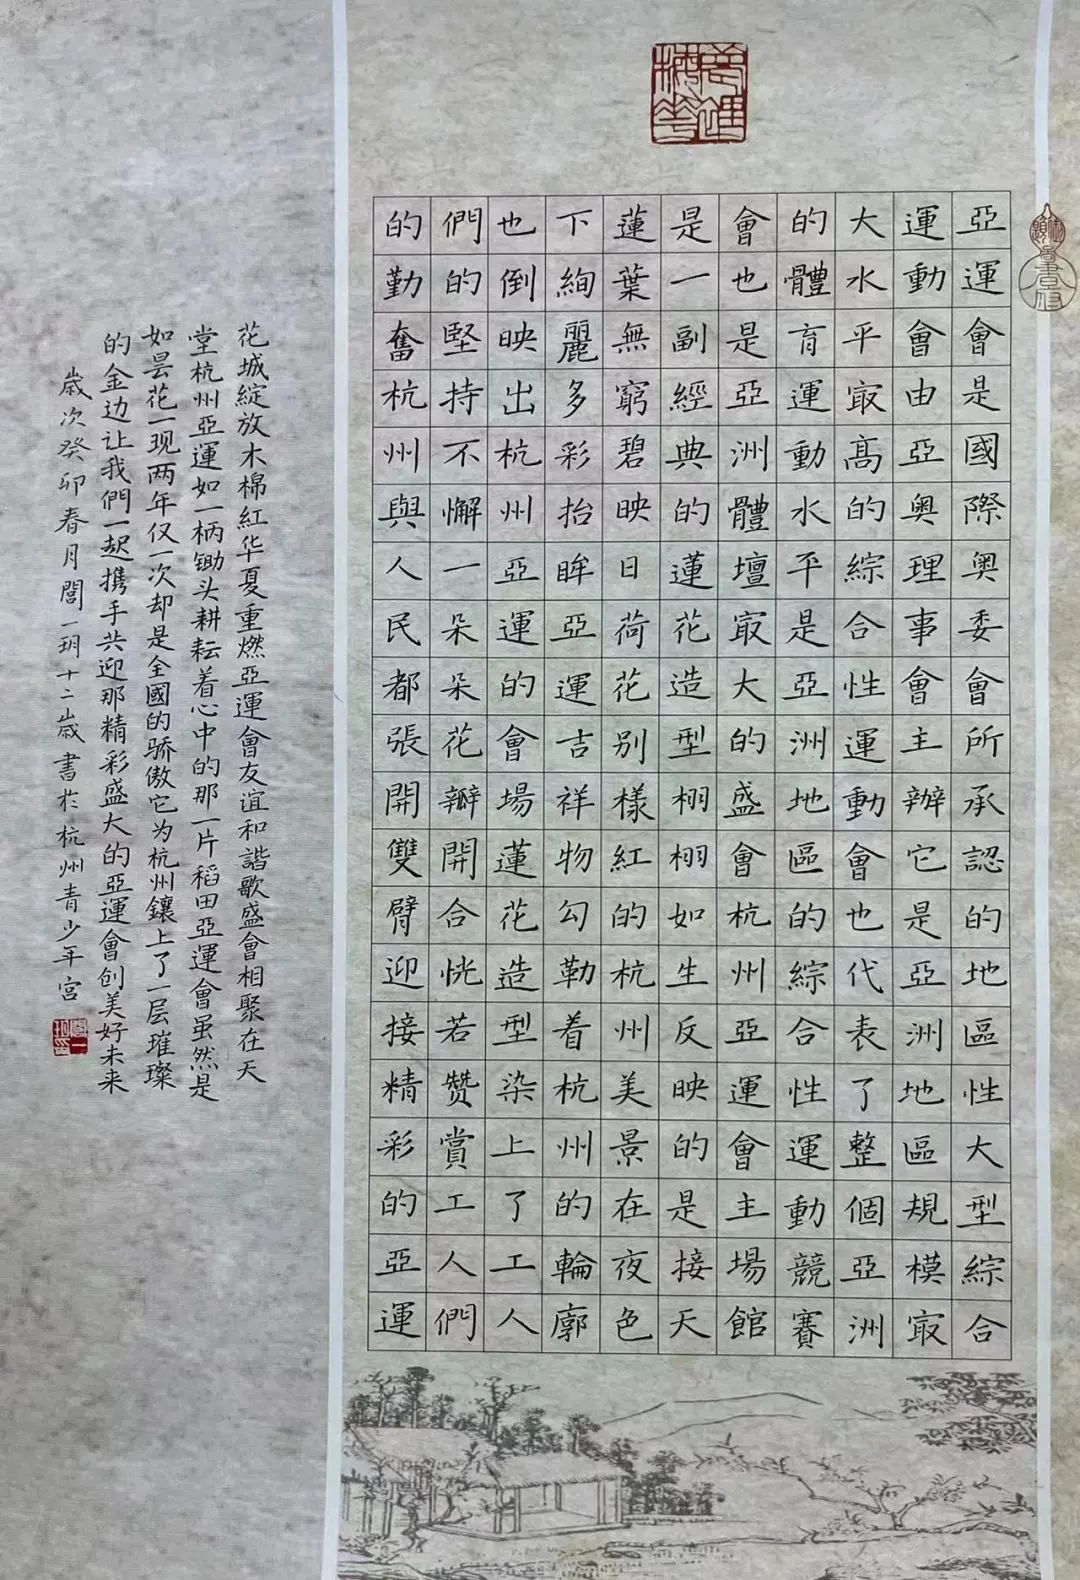 亞運會是國際奧委會所承認的地區性大型綜合
運動會由亞奧理事會主辦它是亞洲地區規模㝡
大水平㝡高的綜合性運動會也代表了整個亞洲
的體育運動水平是亞洲地區的綜合性運動競賽
會也是亞洲體壇㝡大的盛會杭州亞運會主場館
是一副經典的蓮花造型栩栩如生反映的是接天
蓮葉無窮碧映日荷花別樣紅的杭州美景在夜色
下絢麗多彩抬眸亞運吉祥物勾勒着杭州的輪廓
也倒映出杭州亞運的會場蓮花造型染上了工人
們的堅持不懈一朵朵花瓣開合恍若赞賞工人們
的勤奮杭州與人民都張開雙臂迎接精彩的亞運
花城綻放木棉紅华夏重燃亞運會友谊和諧歌盛會相聚在天
堂杭州亞運如一柄锄头耕耘着心中的那一片稻田亞運會虽然是
如昙花一现两年仅一次却是全國的骄傲它为杭州鑲上了一层璀璨
的金边让我們一起携手共迎那精彩盛大的亞運會创美好未来
歲次癸卯春月閻一玥十二歲書於杭州青少年宫